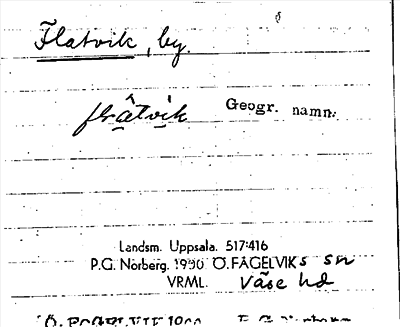 Flatvik, by.
flâtvik Geogr. namn.
Landsm. Uppsala. 517:416
P.G. Norberg. 1930 Ö. FÅGELVIKs sn
VRML. Väse hd